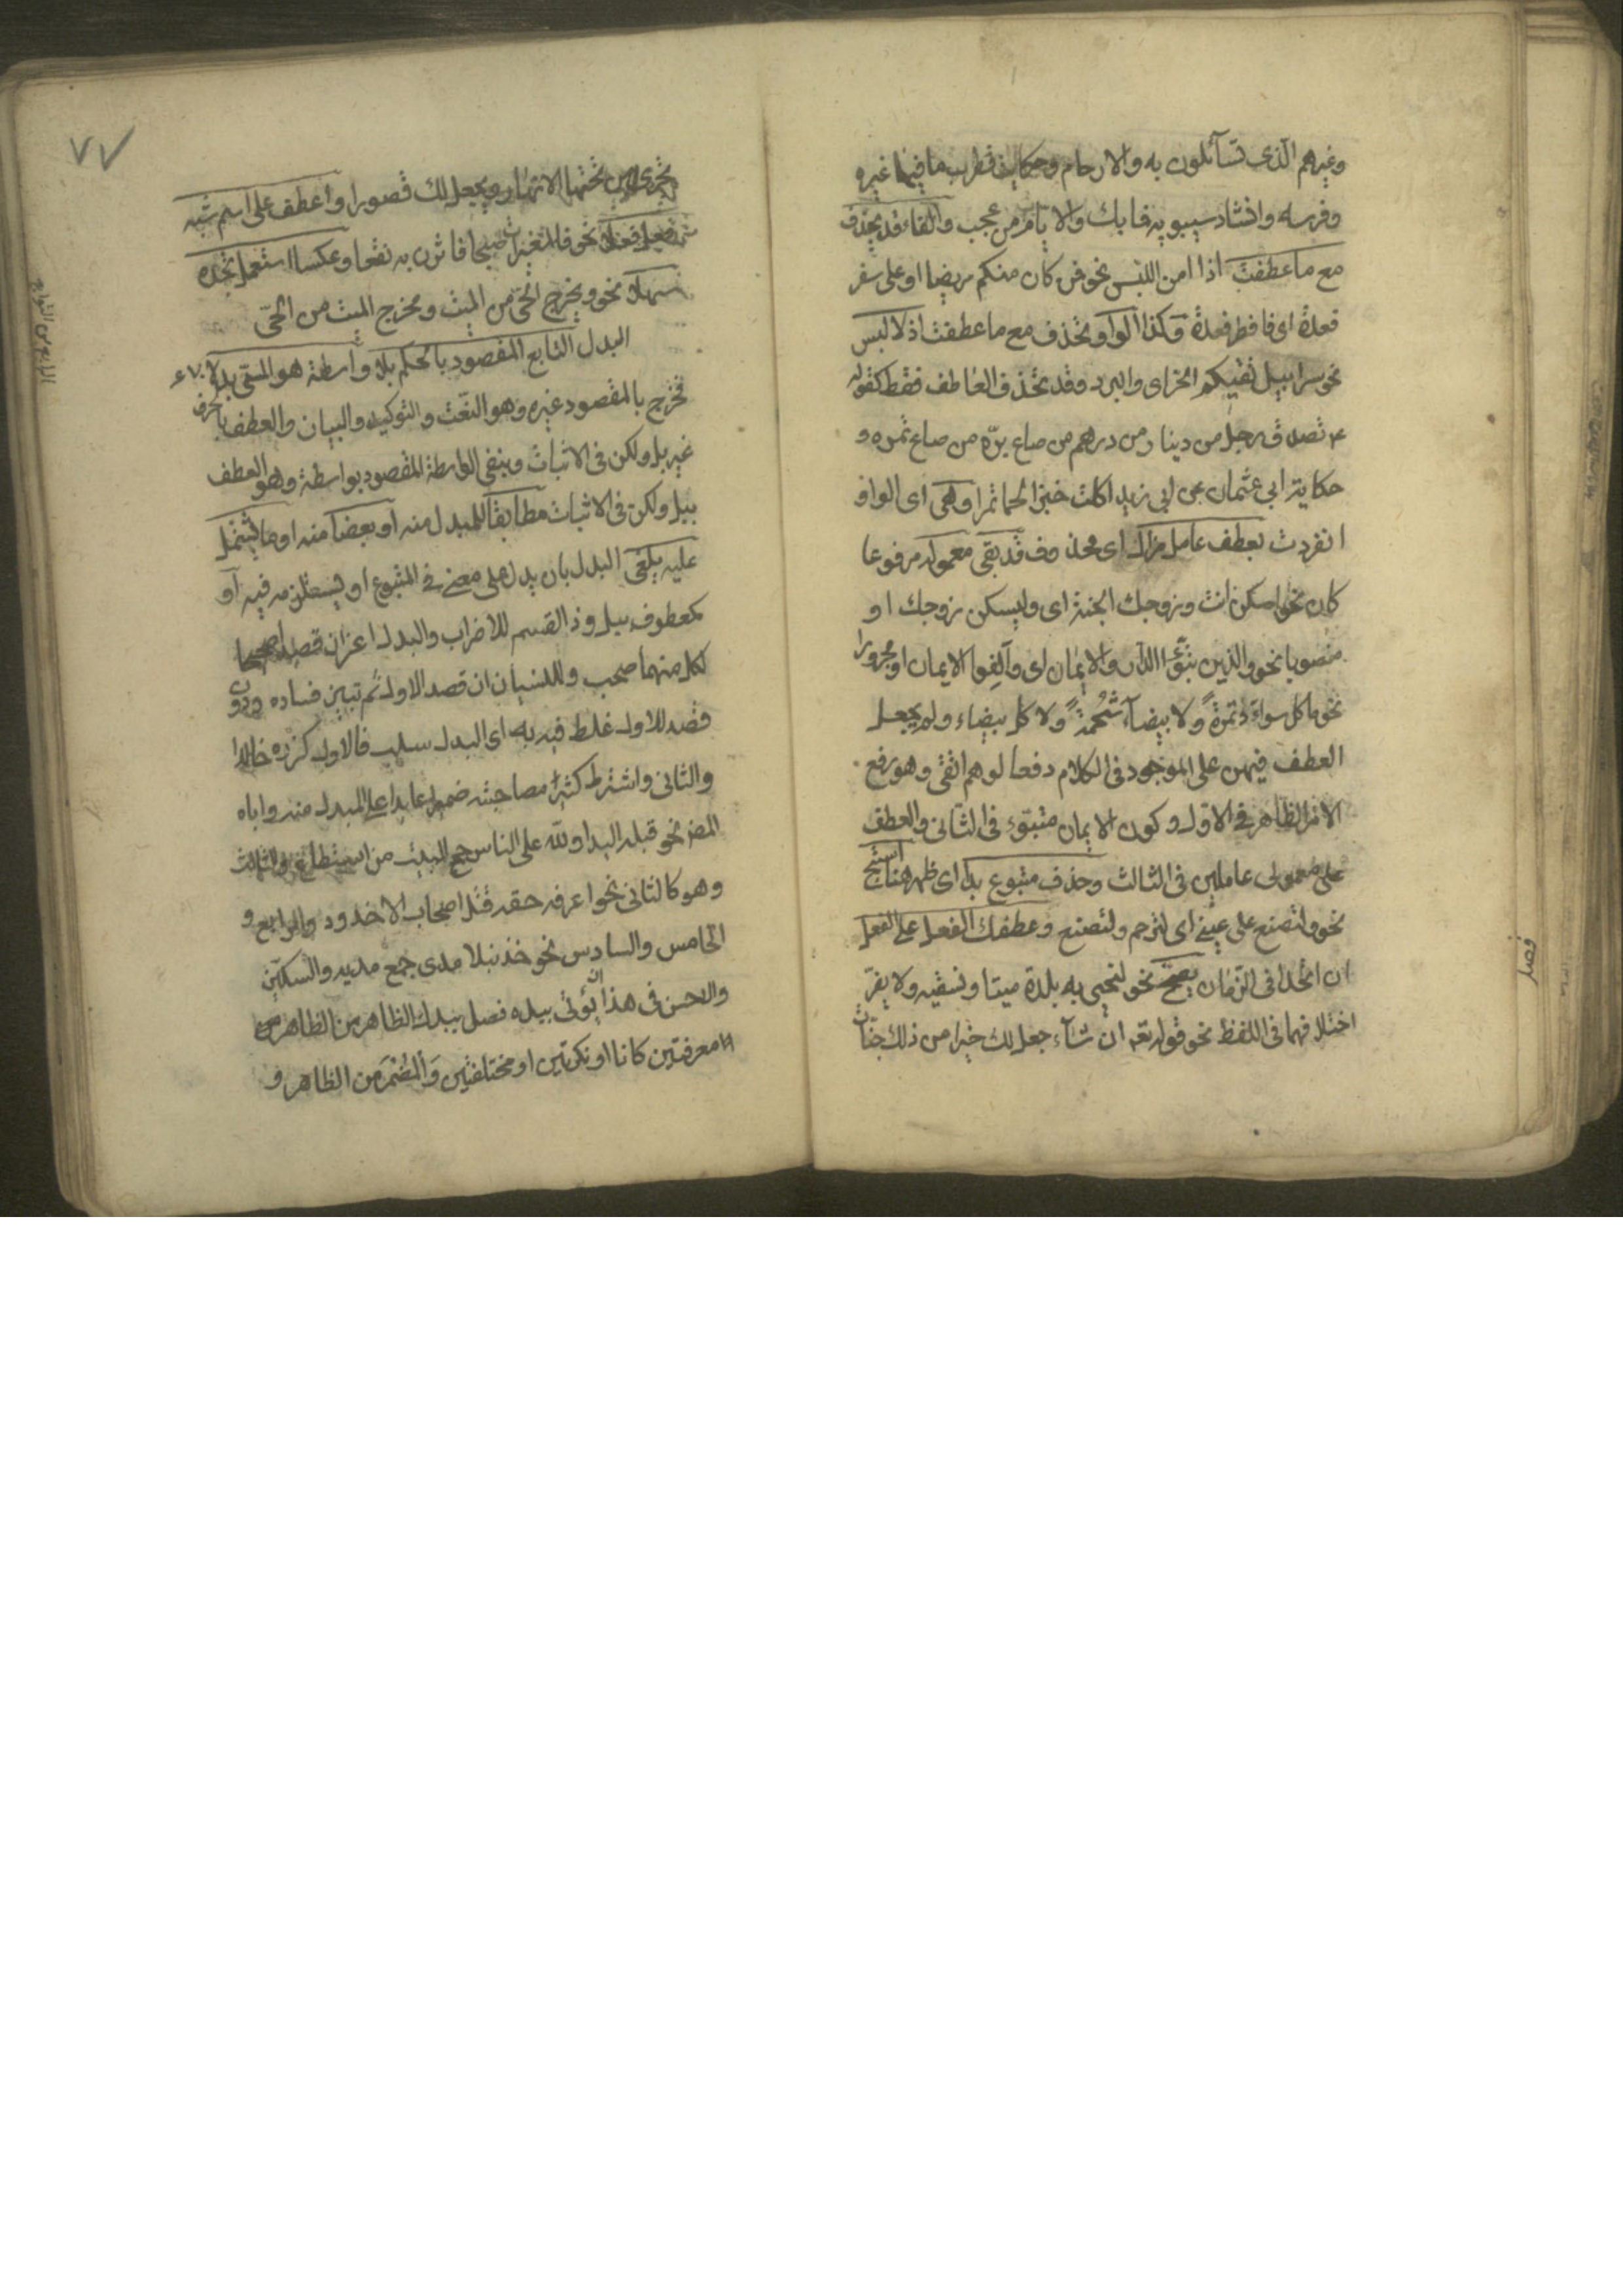 وغيرهم الذى تسآئلون به والارحام وحكاية قطرب ما فيها غيره
وفرسه وانشاد سيبويه فما بك والايام من عجب والفاء قد يحذف
مع ما عطفت اذا امن اللبس نحو فمن كان منكم مريضا او على سفر
فعدة اى فافطر فعدة وكذا الواو تحذف مع ما عطفت اذ لا لبس
نحو سرابيل تقيكم الحر اى والبرد وقد تحذف العاطف فقط كقوله
تصدق رجل من دينار من درهم من صاع بره من صاع تمره و
حكاية ابى عثمان عن ابى زيد اكلت خبزا لحما تمرا وهى اى الواو
انفردت بعطف عامل مزال اى محذوف قد بقى معموله مرفوعا
كان نحو اسكن انت وزوجك الجنة اى وليسكن زوجك او
منصوبا نحو والذين تبوّؤا الدار والايمان اى وآلفوا الايمان او مجرورا
نحو ما كل سوداء تمرةً ولا بيضآء شحمةً ولا كل بيضاء ولم يجعل
العطف فيهن على الموجود فى الكلام دفعا لوهم اتقى وهو رفع
الامر الظاهر فى الاول وكون الايمان متبوء فى الثانى والعطف
على معمولى عاملين فى الثالث وحذف متبوع بدا اى ظهر هنا استبح
نحو ولتصنع على عينى اى لترحم ولتصنع وعطفك الفعل على الفعل
ان اتحدا فى الزمان يصح نحو لنحيى به بلدة ميتا ونسقيه ولا يضرّ
اختلافهما فى اللفظ نحو قوله تعه ان شآء جعل لك خيرا من ذلك جنّات
فصل
٧٧
تجرى من تحتها الانهار ويجعل لك قصورا واعطف على اسم شبه
فعل فعلا نحو فالمغيرات صبحا فاثرن به نقعا وعكسا استعمل تجده
سهلا نحو ويخرج الحى من الميت ومخرج الميت من الحى
البدل التابع المقصود بالحكم بلا واسطة هو المسمى بدلا
فخرج بالمقصود غيره وهو النعت والتوكيد والبيان والعطف بالحرف
غير بل ولكن فى الاثبات وبنفى الواسطة المقصود بواسطة وهو العطف
ببل ولكن فى الاثبات مطابقا للمبدل منه او بعضا منه او ما يشتمل
عليه يلفى البدل بان يدل على معنى فى المتبوع او يستلزمه فيه او
كمعطوف ببل وذا القسم للاضراب والبدا اعزان قصد
لكل منهما صحب وللنسيان ان قصد الاول ثم تبين فساده ودون
قصد للاول غلط فيه به اى البدل سلب فالاول كزره خالدا
والثانى واشترط كثير مصاحبته ضميرا عايدا على المبدل منه واباه
المص نحو قبله اليدا ولله على الناس حج البيت من استطاع والثالث
وهو كالثانى نحو اعرفه حقه قتل اصحاب الاخدود والرابع و
الخامس والسادس نحو خذ نبلا مدى جمع مدية والسكين
والاحسن فى هذا ان يؤتى ببل فصل يبدل الظاهر من الظاهر
معرفتين كانا او نكرتين او مختلفتين والمضمر من الظاهر و